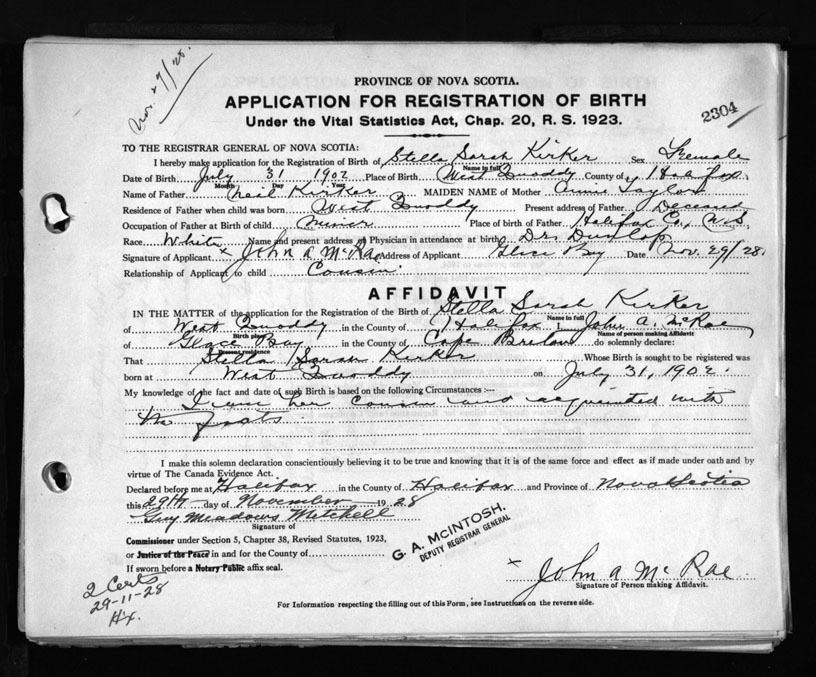 Nov. 29/28.
PROVINCE OF NOVA SCOTIA.
APPLICATION FOR REGISTRATION OF BIRTH
Under the Vital Statistics Act, Chap. 20, R. S. 1923.
2304
TO THE REGISTRAR GENERAL OF NOVA SCOTIA:
I hereby make application for the Registration of Birth of Stella Sarah Kirker Sex Female
Name in full
Date of Birth July 31 1902 Place of Birth West Quoddy County of Halifax
Month Day Year
Name of Father Neil Kirker MAIDEN NAME of Mother Annie Taylor
Residence of Father when child was born West Quoddy Present address of Father Deceased
Occupation of Father at Birth of child Miner Place of birth of Father Halifax Co., N.S.
Race White Name and present address of Physician in attendance at birth Dr. Dunlop
Signature of Applicant x John A McRae Address of Applicant Glace Bay Date Nov. 29/28.
Relationship of Applicant to child Cousin.
AFFIDAVIT
IN THE MATTER of the application for the Registration of Birth of Stella Sarah Kirker
Name in full
of West Quoddy in the County of Halifax I John A. McRae
Birth place Name of person making Affidavit
of Glace Bay in the County of Cape Breton do solemnly declare:
Present residence
That Stella Sarah Kirker Whose Birth is sought to be registered was
born at West Quoddy on July 31, 1902.
My knowledge of the fact and date of such Birth is based on the following Circumstances :—
I am her Cousin and acquainted with
the facts.
I make this solemn declaration conscientiously believing it to be true and knowing that it is of the same force and effect as if made under oath and by
virtue of The Canada Evidence Act.
Declared before me at Halifax in the County of Halifax and Province of Nova Scotia
this 29th day of November 1928
Guy Meadows Mitchell
Signature of
Commissioner under Section 5, Chapter 38, Revised Statutes, 1923,
or Justice of the Peace in and for the County of
If sworn before a Notary Public affix seal.
G. A. McINTOSH,
DEPUTY REGISTRAR GENERAL
x John A McRae
Signature of Person making Affidavit.
2 Certs
29-11-28
Hx.
For Information respecting the filling out of this Form, see Instructions on the reverse side.